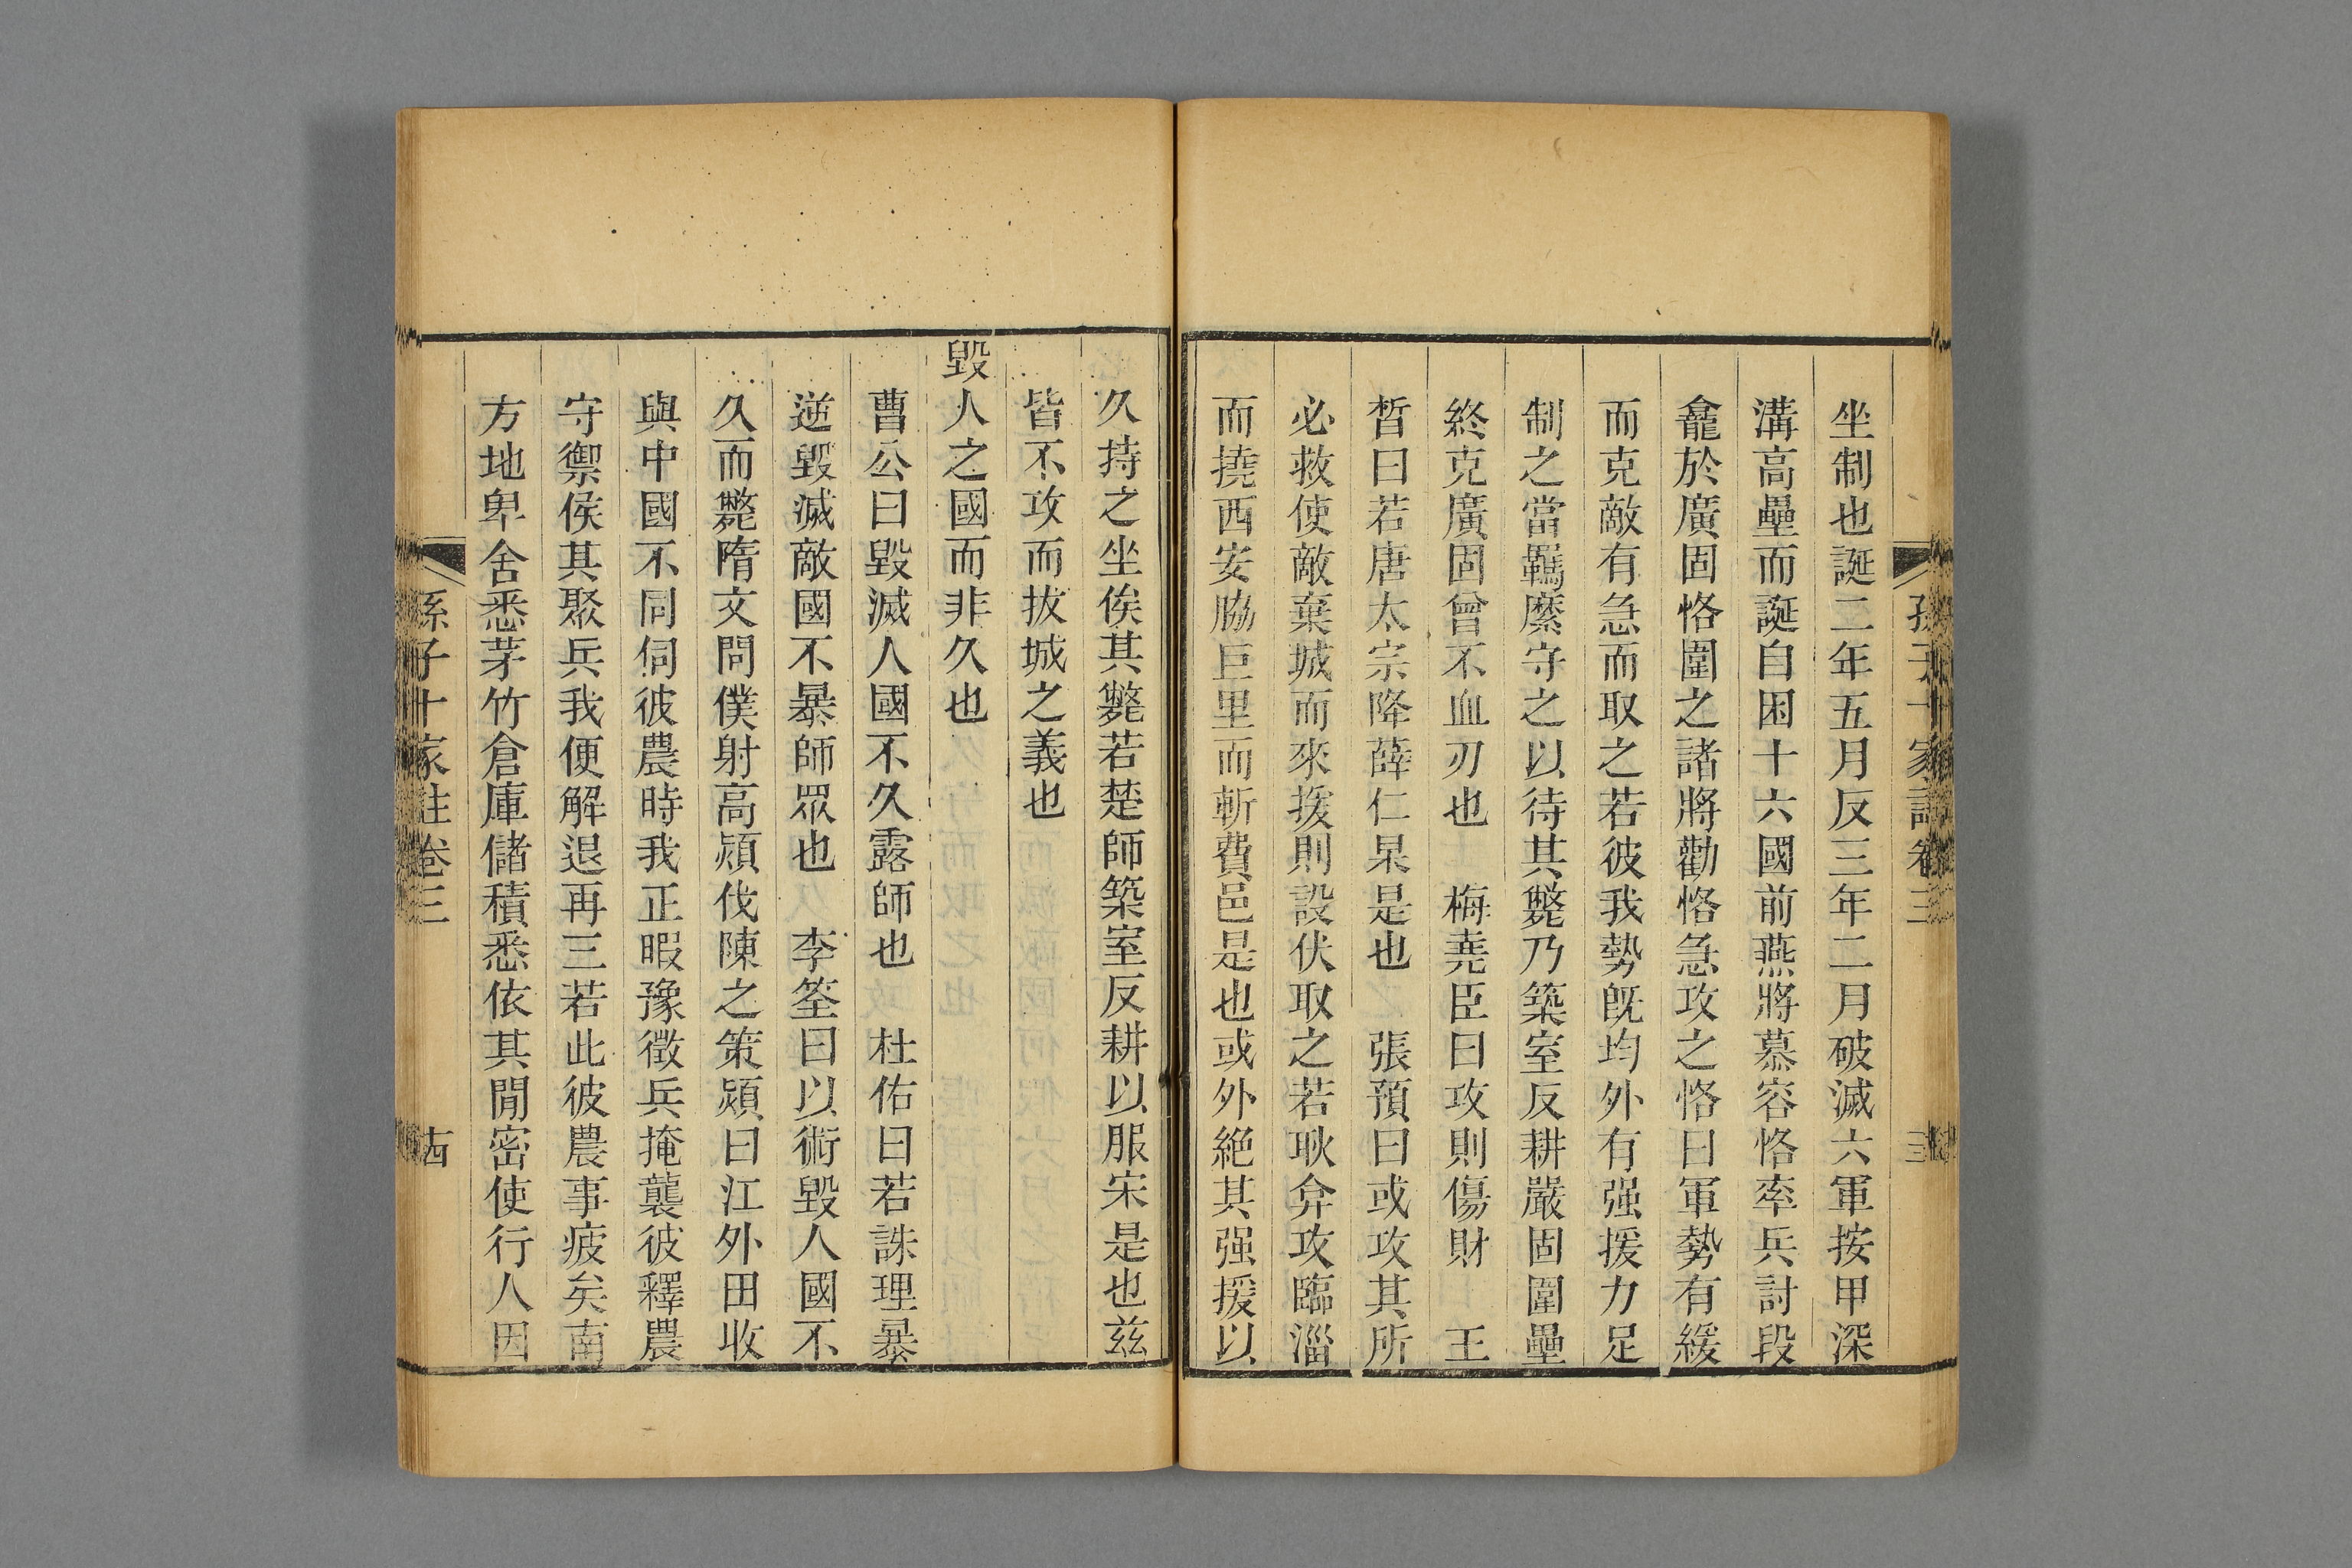 坐制也誕二年五月反三年二月破滅六軍按甲深
溝高壘而誕自困十六國前燕將慕容恪率兵討段
龕於廣固恪圍之諸將勸恪急攻之恪曰軍勢有緩
而克敵有急而取之若彼我勢旣均外有强援力足
制之當羈縻守之以待其斃乃築室反耕嚴固圍壘
終克廣固曾不血刃也　梅堯臣曰攻則傷財　王
晳曰若唐太宗降薛仁杲是也　張預曰或攻其所
必救使敵棄城而來援則設伏取之若耿弇攻臨淄
而撓西安脇巨里而斬費邑是也或外絶其强援以
久持之坐俟其斃若楚師築室反耕以服宋是也兹
皆不攻而拔城之義也
毁人之國而非久也
曹公曰毁滅人國不久露師也　杜佑曰若誅理暴
逆毁滅敵國不暴師眾也　李筌曰以術毁人國不
久而斃隋文問僕射高熲伐陳之策熲曰江外田收
與中國不同伺彼農時我正暇豫徵兵掩襲彼釋農
守禦侯其聚兵我便解退再三若此彼農事疲矣南
方地卑舍悉茅竹倉庫儲積悉依其閒密使行人因
孫子十家註卷三